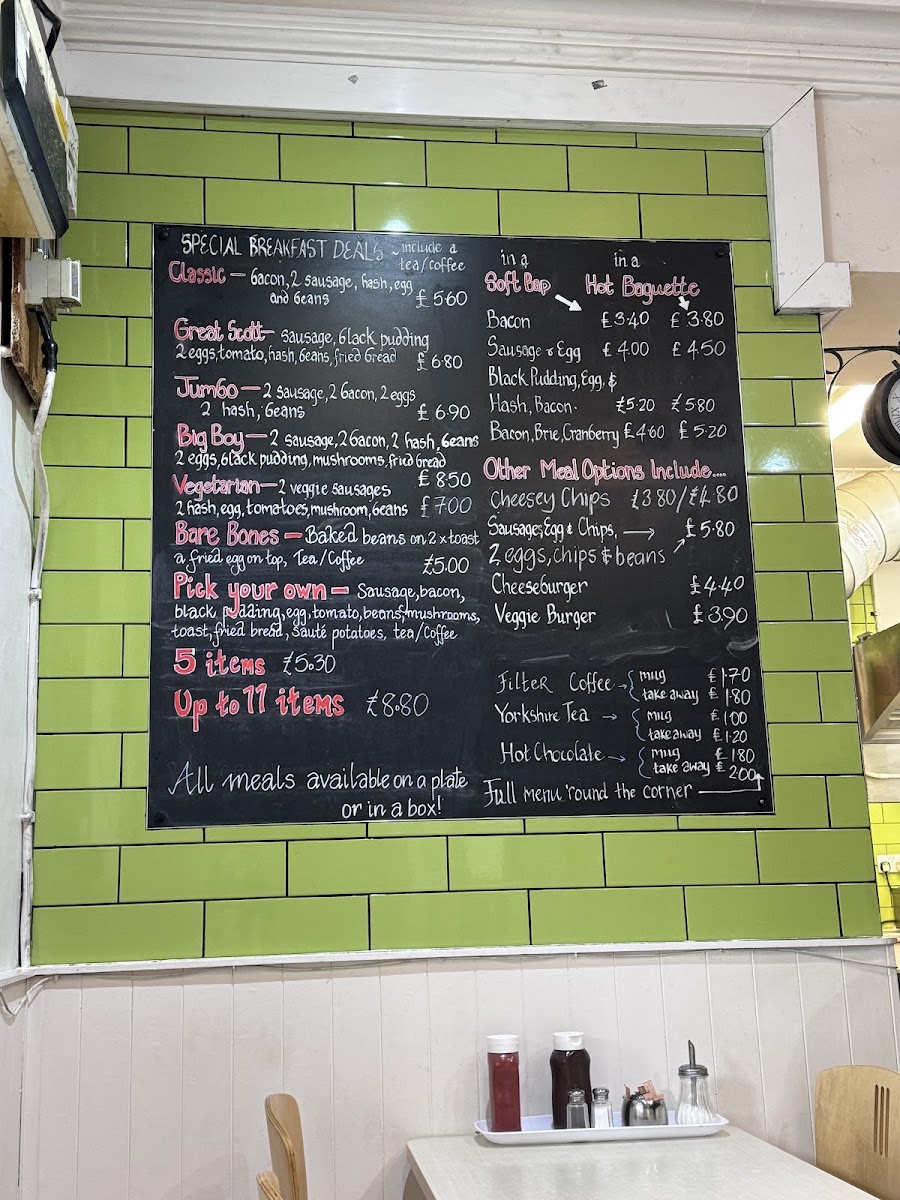 SPECIAL BREAKFAST DEALS ~ include a
tea/coffee
Classic — bacon, 2 sausage, hash, egg
and beans £5·60
Great Scott — sausage, black pudding
2 eggs, tomato, hash, beans, fried bread £6·80
Jumbo — 2 sausage, 2 bacon, 2 eggs
2 hash, beans £6·90
Big Boy — 2 sausage, 2 bacon, 2 hash, beans
2 eggs, black pudding, mushrooms, fried bread
£8·50
Vegetarian — 2 veggie sausages
2 hash, egg, tomatoes, mushroom, beans £7·00
Bare Bones — Baked beans on 2 x toast
a fried egg on top, Tea/Coffee £5.00
Pick your own — Sausage, bacon,
black pudding, egg, tomato, beans, mushrooms,
toast, fried bread, Sauté potatoes, tea/Coffee
5 items £5.30
Up to 11 items £8.80
All meals available on a plate
or in a box!
in a in a
Soft Bap Hot Baguette
Bacon £3·40 £3·80
Sausage & Egg £4·00 £4·50
Black Pudding, Egg, &
Hash, Bacon. £5·20 £5·80
Bacon, Brie, Cranberry £4·60 £5·20
Other Meal Options Include....
Cheesey Chips £3·80/£4·80
Sausages, Egg & Chips, → £5·80
2 eggs, chips & beans
Cheeseburger £4·40
Veggie Burger £3.90
Filter Coffee → { mug £1·70
take away £1·80
Yorkshire Tea → { mug £1·00
takeaway £1·20
Hot Chocolate → { mug £1·80
take away £2·00
Full menu 'round the corner